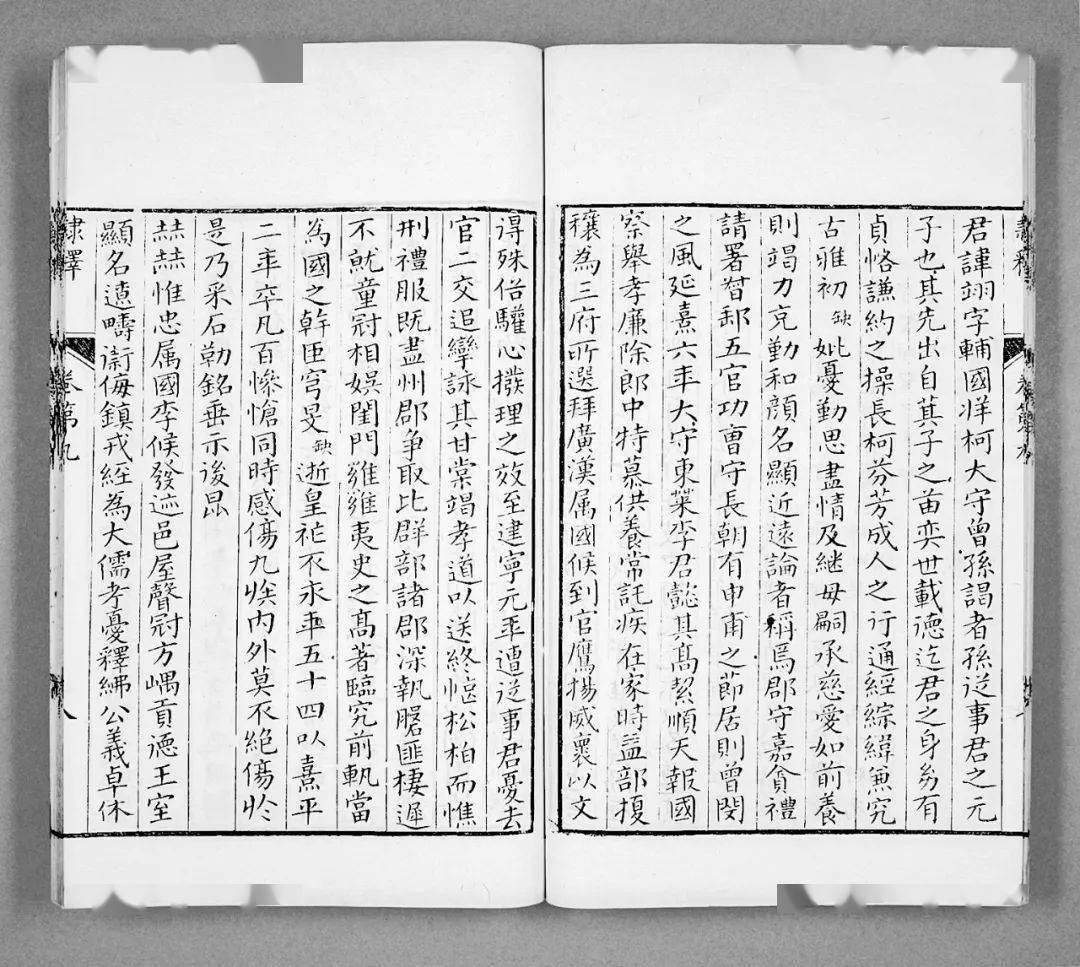 君諱翊字輔國牂柯大守曾孫謁者孫从事君之元
子也其先出自萁子之苗奕世載德迄君之身㐱有
貞恪謙約之操長柯芬芳成人之行通經綜緯兼究
古雅初缺妣憂勤思盡情及继母嗣承慈愛如前養
則竭力克勤和顔名顯近遠論者稱焉郡守嘉貪禮
請署督郵五官功曹守長朝有申甫之節居則曾閔
之風延熹六年大守東萊李君懿其髙絜順天報國
察舉孝廉除郎中特慕供養常託疾在家時益部擾
穰為三府所選拜廣漢属國候到官鷹揚威褱以文
得殊俗驩心撥理之效至建寧元年遭从事君憂去
官二交追攣詠其甘棠竭孝道以送終愜松柏而憔
刑禮服既盡州郡争取比群部諸郡深執䐡匪棲遲
不就童冠相娛閨門雍雍夷史之髙著臨究前軌當
為國之幹臣穹旻缺逝皇祉不永年五十四以熹平
二年卒凡百慘愴同時感傷九族内外莫不絶傷於
是乃采石勒銘垂示後昆
赫赫惟忠属國李候發迹邑屋聲冠方嵎貢德王室
顯名遠疇衞侮鎮戎經為大儒孝憂釋紼公義卓休
隸釋 卷第九 八